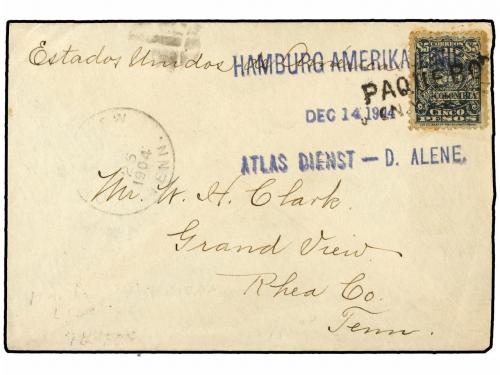 Estados Unidos de
HAMBURG AMERIKA
PAQUEBOT
CORREOS
COLOMBIA
CINCO
PESOS
DEC 14 1904
ATLAS DIENST — D. ALENE.
1904
TENN.
Mr. W. H. Clark.
Grand View.
Rhea Co.
Tenn.